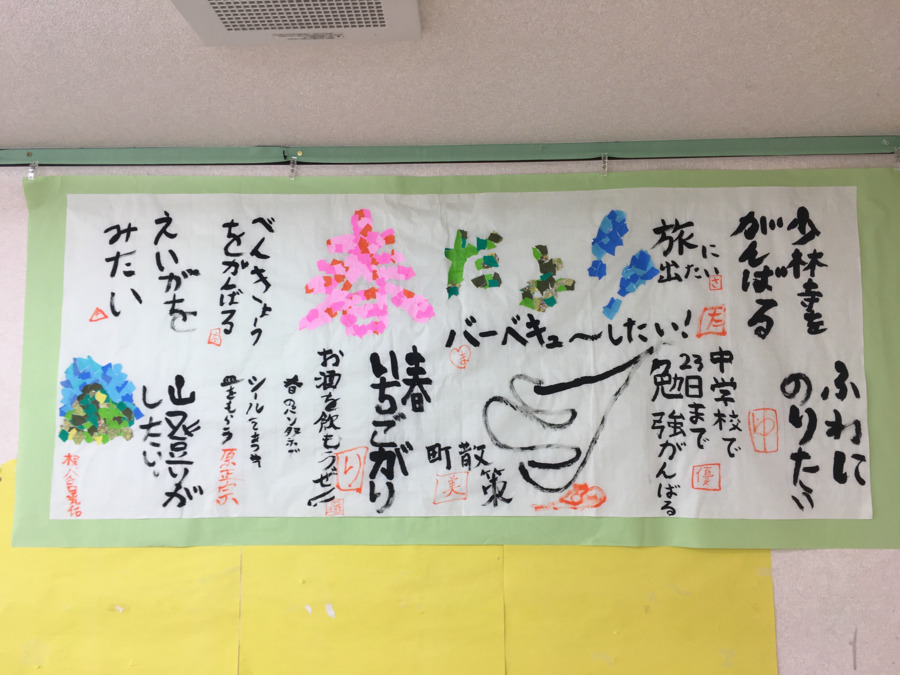 少林寺を
がんばる
ふねに
のりたい
旅に
出たい
さ
中学校で
23日まで
勉強がんばる
優
ゆ
春だよ!
バーベキュ〜したい!
町散策
美
春
いちごがり
り
お酒を飲もうぜ!!
春のパン祭で
シールてきつき
皿をもらう
原正宗
べんきょう
をがんばる
えいがを
みたい
山登りが
したい